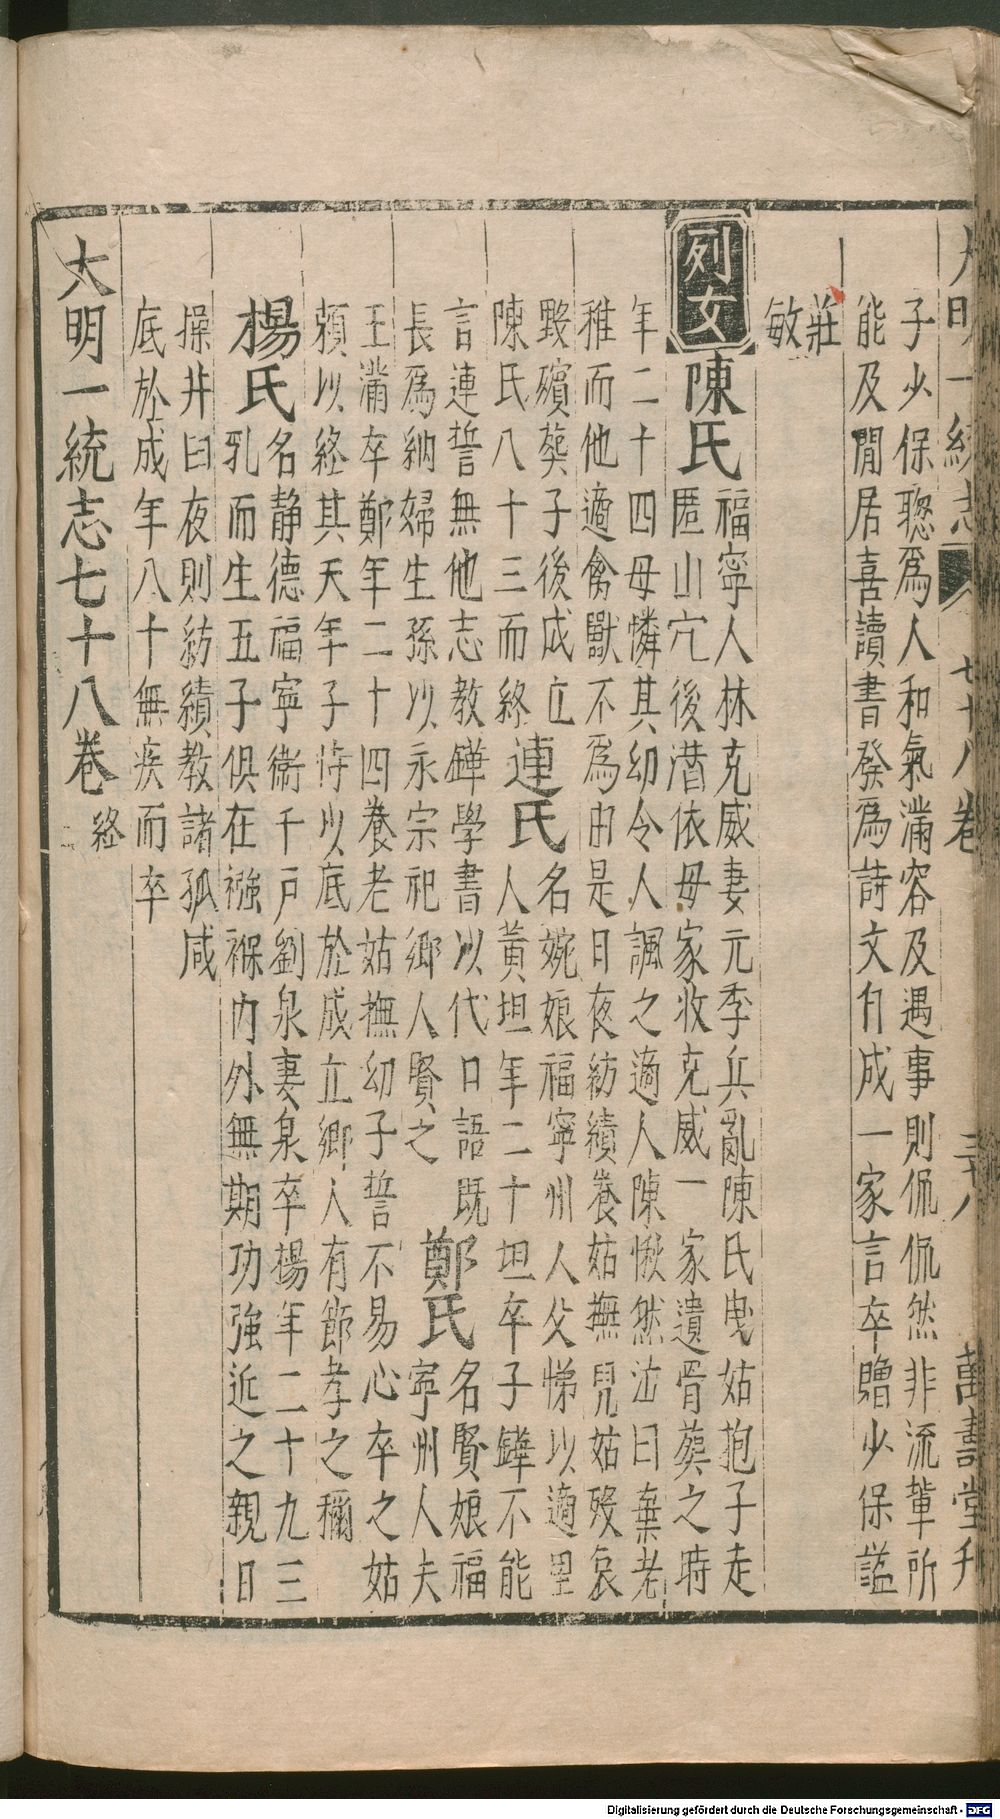 大明一統志 七十八卷 三十八 萬壽堂刋
子少保聰爲人和氣滿容及遇事則侃侃然非流輩所
能及閒居喜讀書發爲詩文自成一家言卒贈少保謚
莊
敏
列女
陳氏
福寧人林克威妻元季兵亂陳氏曳姑抱子走
匿山穴後潛依母家收克威一家遺骨葬之時
年二十四母憐其幼令人諷之適人陳愀然泣曰棄老
稚而他適禽獸不爲由是日夜紡績養姑撫兒姑殁哀
毀殯葬子後成立
陳氏八十三而終
連氏
名婉娘福寧州人父悌以適里
人黃坦年二十坦卒子鏵不能
言連誓無他志教鏵學書以代口語既
長爲納婦生孫以永宗祀鄉人賢之
鄭氏
名賢娘福
寧州人夫
王滿卒鄭年二十四養老姑撫幼子誓不易心卒之姑
頼以終其天年子恃以底於成立鄉人有節孝之稱
楊氏
名静德福寧衛千戸劉泉妻泉卒楊年二十九三
乳而生五子俱在襁褓内外無期功強近之親日
操井臼夜則紡績教諸孤咸
底於成年八十無疾而卒
大明一統志七十八卷 終
Digitalisierung gefördert durch die Deutsche Forschungsgemeinschaft - DFG